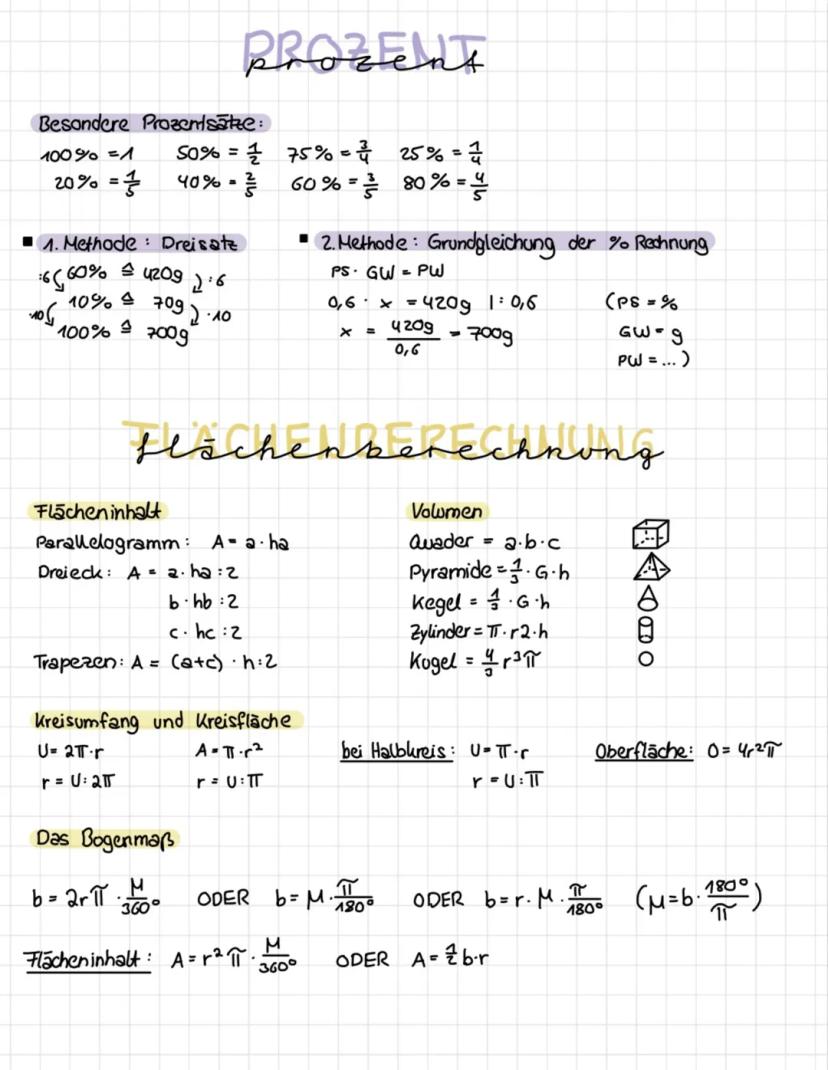 PROZENT
prozent
Besondere Prozentsätze:
100% = 1 50% = 1/2 75% = 3/4 25% = 1/4
20% = 1/5 40% = 2/5 60% = 3/5 80% = 4/5
1. Methode: Dreisatz
:6 60% ≙ 420g :6
10% ≙ 70g
·10 100% ≙ 700g ·10
2. Methode: Grundgleichung der % Rechnung
PS · GW = PW
0,6 · x = 420g |: 0,6
x = 420g/0,6 = 700g
(PS = %
GW = g
PW = ...)
FLÄCHENBERECHNUNG
flächenberechnung
Flächeninhalt
Parallelogramm: A = a · ha
Dreieck: A = a · ha : 2
b · hb : 2
c · hc : 2
Trapezen: A = (a+c) · h : 2
Volumen
Quader = a·b·c
Pyramide = 1/3 · G·h
Kegel = 1/3 · G·h
Zylinder = π · r2 · h
Kugel = 4/3 r³π
Kreisumfang und Kreisfläche
U = 2π·r A = π·r² bei Halbkreis: U = π·r Oberfläche: O = 4r²π
r = U : 2π r = U : π r = U : π
Das Bogenmaß
b = 2rπ · μ/360° ODER b = μ · π/180° ODER b = r · μ · π/180° (μ = b · 180°/π)
Flächeninhalt: A = r²π · μ/360° ODER A = 1/2 b·r